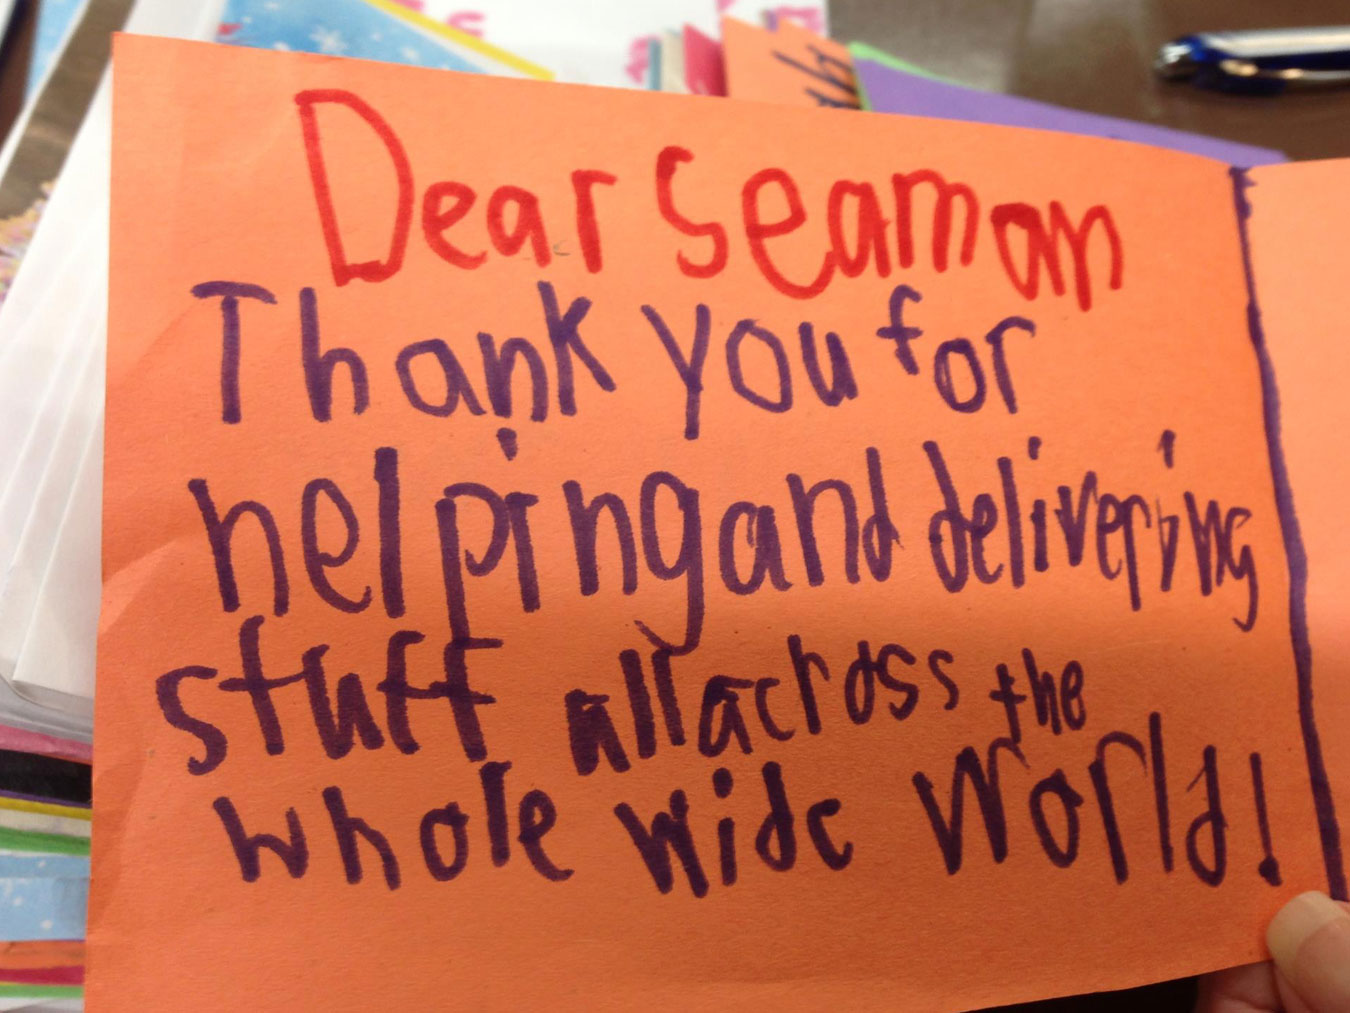 Dear Seaman
Thank you for
helping and delivering
stuff all across the
whole wide world!